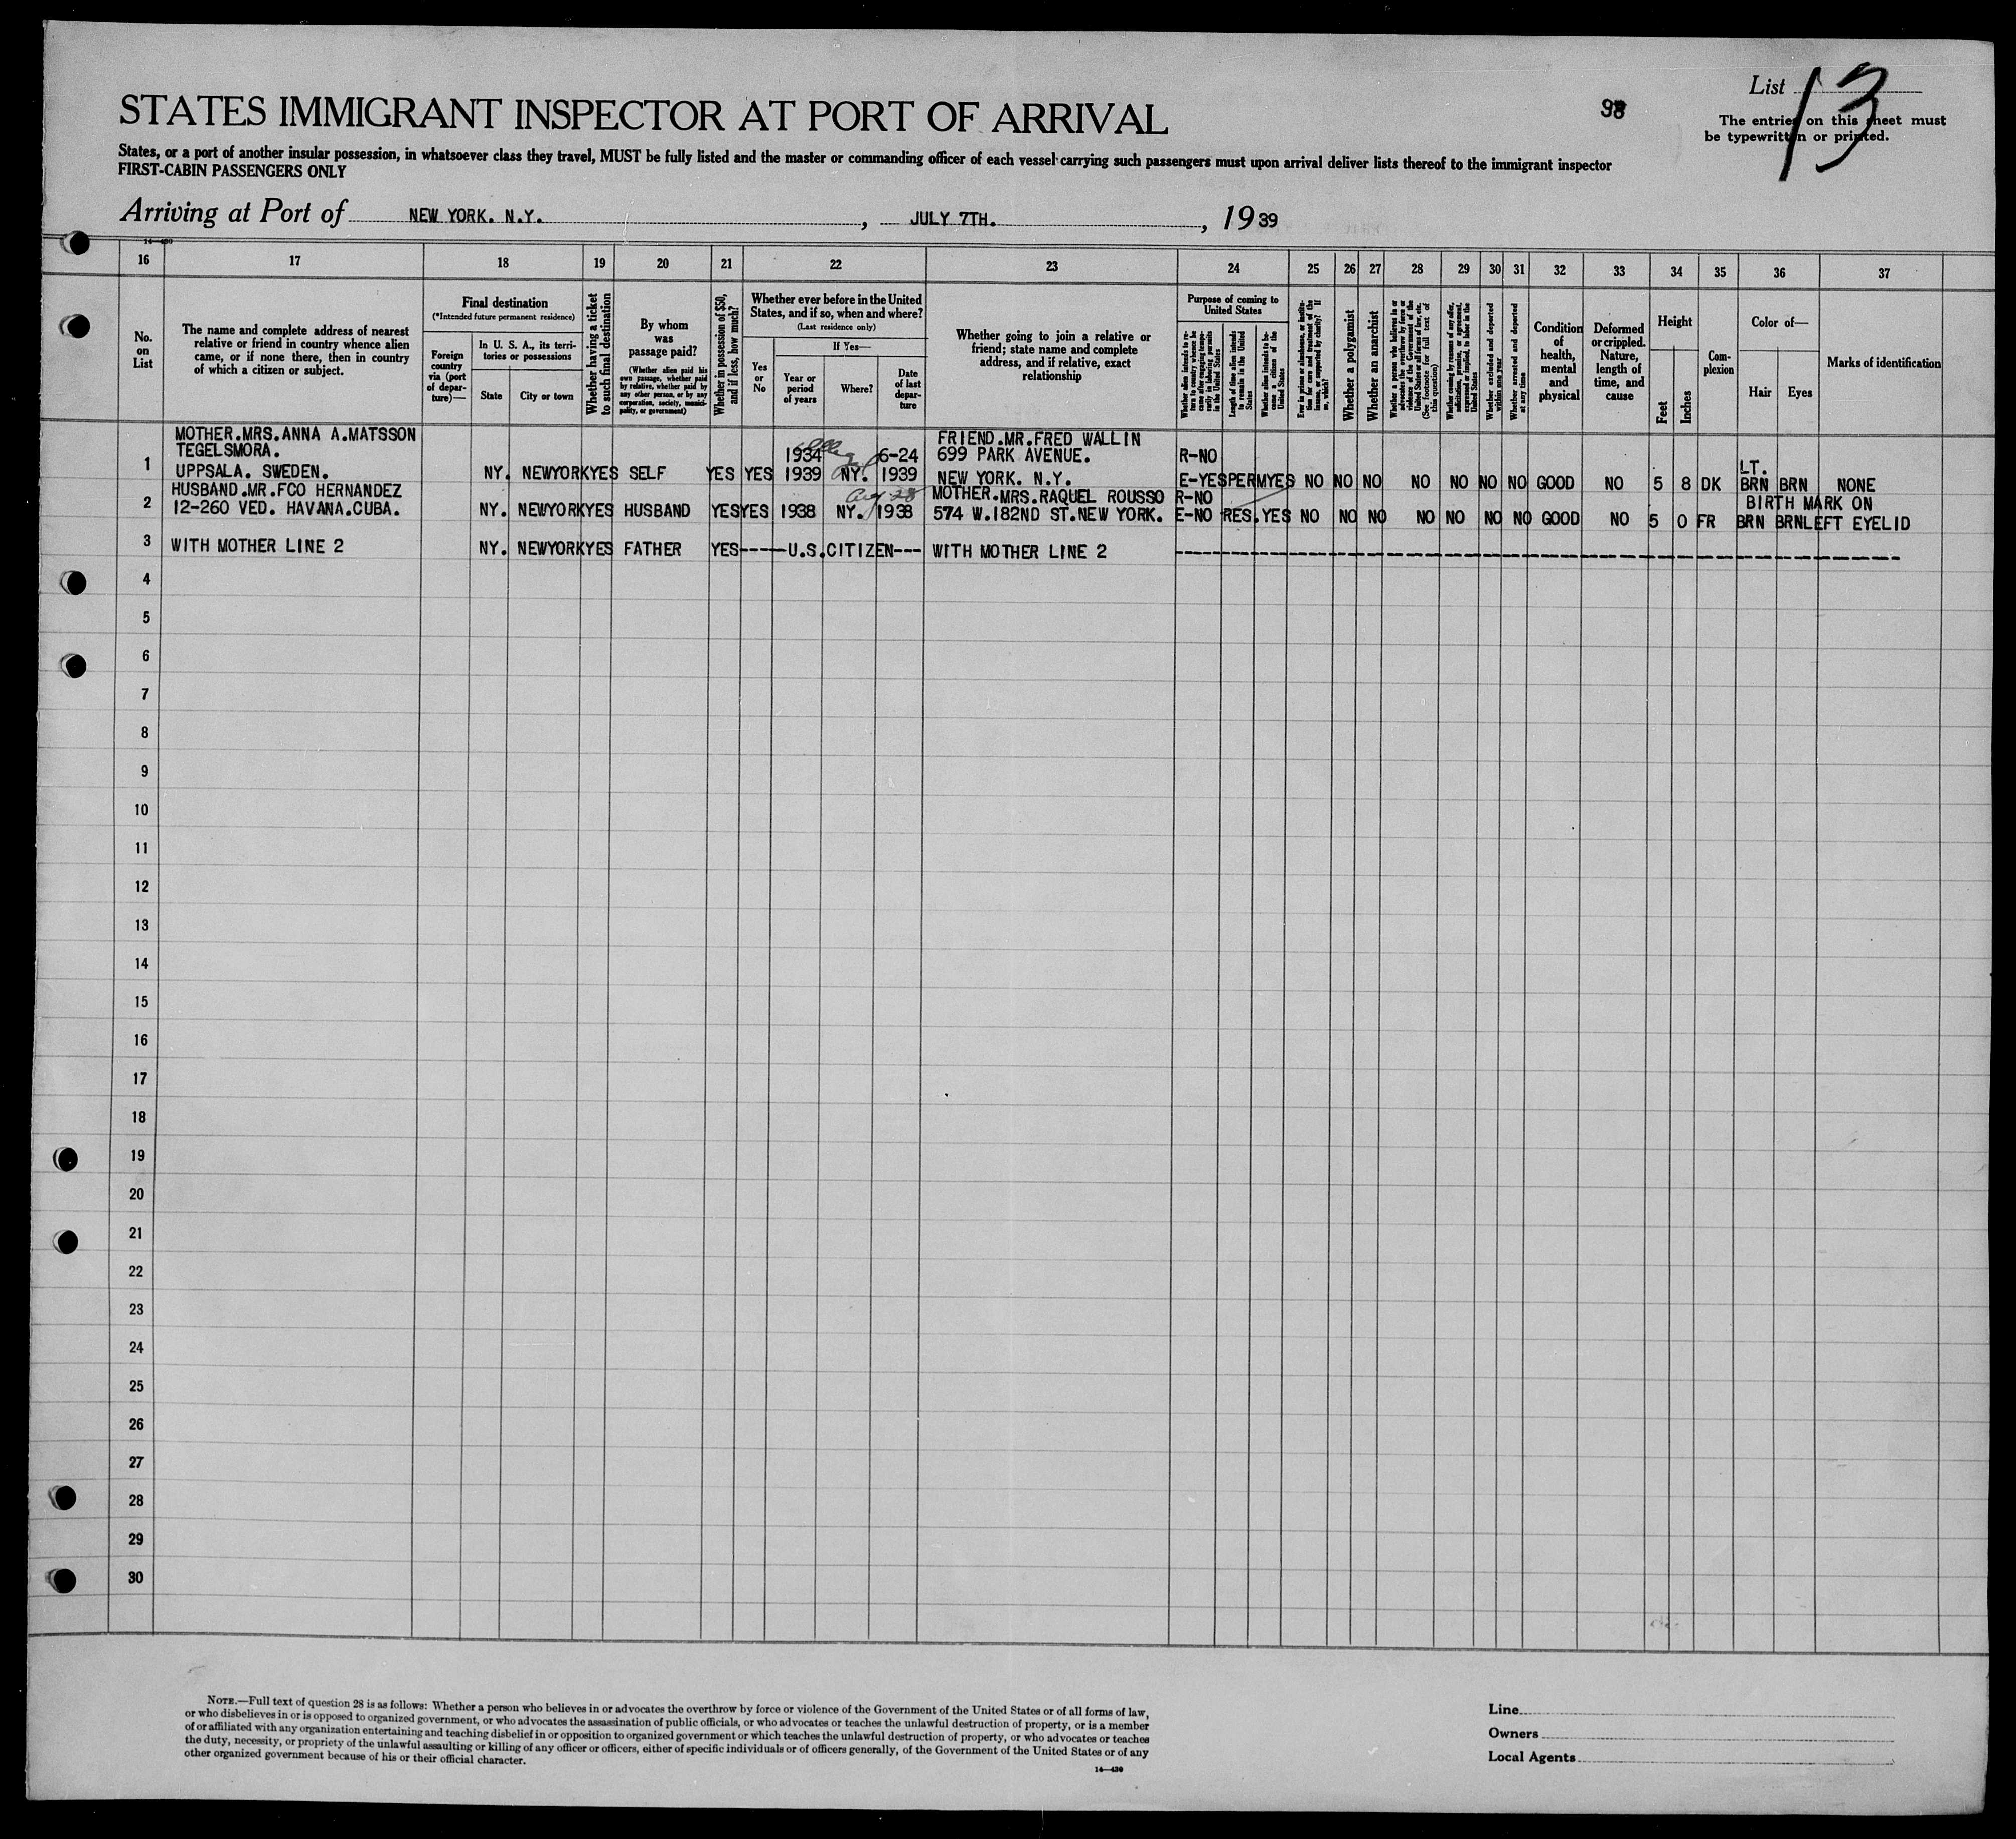 List 13
98
The entries on this sheet must
be typewritten or printed.
STATES IMMIGRANT INSPECTOR AT PORT OF ARRIVAL
States, or a port of another insular possession, in whatsoever class they travel, MUST be fully listed and the master or commanding officer of each vessel carrying such passengers must upon arrival deliver lists thereof to the immigrant inspector
FIRST-CABIN PASSENGERS ONLY
Arriving at Port of NEW YORK. N.Y. , JULY 7TH. , 19 39
14—430
16 17 18 19 20 21 22 23 24 25 26 27 28 29 30 31 32 33 34 35 36 37
No.
on
List
The name and complete address of nearest
relative or friend in country whence alien
came, or if none there, then in country
of which a citizen or subject.
Final destination
(*Intended future permanent residence)
Foreign
country
via (port
of depar-
ture)—
In U. S. A., its terri-
tories or possessions
State City or town
Whether having a ticket
to such final destination
By whom
was
passage paid?
(Whether alien paid his
own passage, whether paid
by relative, whether paid by
any other person, or by any
corporation, society, munici-
pality, or government)
Whether in possession of $50,
and if less, how much?
Whether ever before in the United
States, and if so, when and where?
(Last residence only)
Yes
or
No
If Yes—
Year or
period
of years
Where?
Date
of last
depar-
ture
Whether going to join a relative or
friend; state name and complete
address, and if relative, exact
relationship
Purpose of coming to
United States
Whether alien intends to re-
turn to country whence he
came after engaging tempo-
rarily in laboring pursuits
in the United States
Length of time alien intends
to remain in the United
States
Whether alien intends to be-
come a citizen of the
United States
Ever in prison or almshouse, or institu-
tion for care and treatment of the
insane, or supported by charity? If
so, which?
Whether a polygamist
Whether an anarchist
Whether a person who believes in or
advocates the overthrow by force or
violence of the Government of the
United States or all forms of law, etc.
(See footnote for full text of
this question)
Whether coming by reason of any offer,
solicitation, promise, or agreement,
expressed or implied, to labor in the
United States
Whether excluded and deported
within one year
Whether arrested and deported
at any time
Condition
of
health,
mental
and
physical
Deformed
or crippled.
Nature,
length of
time, and
cause
Height
Feet
Inches
Com-
plexion
Color of—
Hair Eyes
Marks of identification
MOTHER.MRS.ANNA A.MATSSON FRIEND.MR.FRED WALLIN
TEGELSMORA. 1934 6-24 699 PARK AVENUE. R-NO LT.
1 UPPSALA. SWEDEN. NY. NEWYORK YES SELF YES YES 1939 NY. 1939 NEW YORK. N.Y. E-YES PERM YES NO NO NO NO NO NO NO GOOD NO 5 8 DK BRN BRN NONE
HUSBAND.MR.FCO HERNANDEZ Aug 28 MOTHER.MRS.RAQUEL ROUSSO R-NO BIRTH MARK ON
2 12-260 VED. HAVANA.CUBA. NY. NEWYORK YES HUSBAND YES YES 1938 NY. 1938 574 W.182ND ST.NEW YORK. E-NO RES. YES NO NO NO NO NO NO NO GOOD NO 5 0 FR BRN BRN LEFT EYELID
3 WITH MOTHER LINE 2 NY. NEWYORK YES FATHER YES----U.S.CITIZEN--- WITH MOTHER LINE 2
4
5
6
7
8
9
10
11
12
13
14
15
16
17
18
19
20
21
22
23
24
25
26
27
28
29
30
NOTE.—Full text of question 28 is as follows: Whether a person who believes in or advocates the overthrow by force or violence of the Government of the United States or of all forms of law,
or who disbelieves in or is opposed to organized government, or who advocates the assassination of public officials, or who advocates or teaches the unlawful destruction of property, or is a member
of or affiliated with any organization entertaining and teaching disbelief in or opposition to organized government or which teaches the unlawful destruction of property, or who advocates or teaches
the duty, necessity, or propriety of the unlawful assaulting or killing of any officer or officers, either of specific individuals or of officers generally, of the Government of the United States or of any
other organized government because of his or their official character.
14—430
Line
Owners
Local Agents